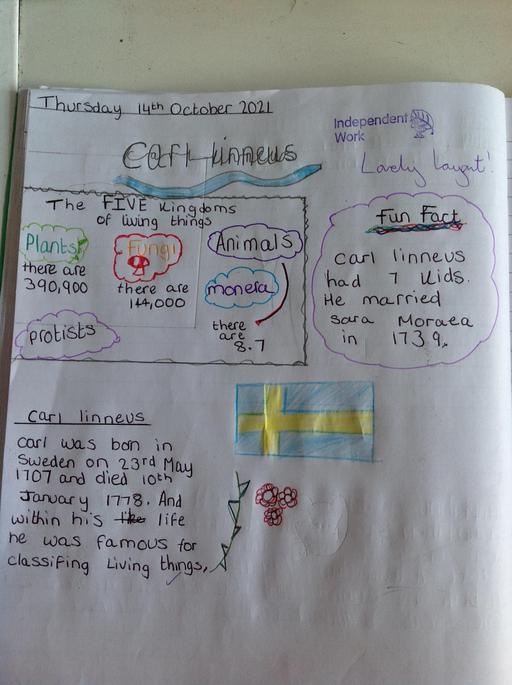 Thursday 14th October 2021
Independent
Work
Carl linneus
Lovely
The FIVE Kingdoms
of living things
Plants
there are
390,900
Fungi
there are
144,000
Animals
monera
there
are
8.7
protists
Fun Fact
Carl linneus
had 7 kids.
He married
sara Moraea
in 1739.
Carl linneus
Carl was born in
Sweden on 23rd May
1707 and died 10th
January 1778. And
within his like life
he was famous for
classifing Living things.